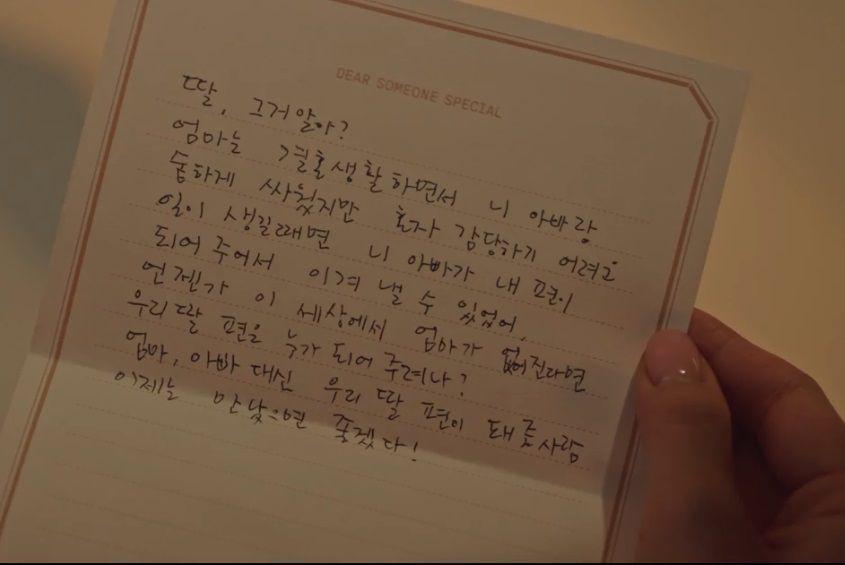 DEAR SOMEONE SPECIAL
딸, 그거 알아?
엄마는 결혼생활 하면서 니 아빠랑
숱하게 싸웠지만 혼자 감당하기 어려운
일이 생길때면 니 아빠가 내 편이
되어 주어서 이겨 낼 수 있었어.
언젠가 이 세상에서 엄마가 없어진다면
우리 딸 편은 누가 되어 주려나?
엄마, 아빠 대신 우리 딸 편이 돼 줄 사람
이제는 만났으면 좋겠다!